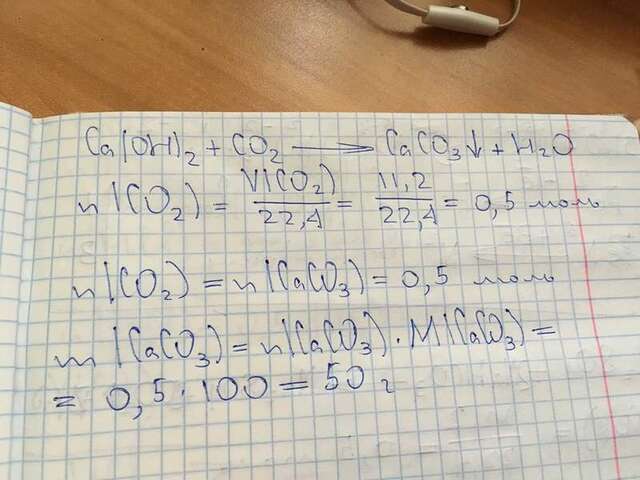 Ca(OH)₂ + CO₂ → CaCO₃↓ + H₂O
n(CO₂) = V(CO₂)/22,4 = 11,2/22,4 = 0,5 моль
n(CO₂) = n(CaCO₃) = 0,5 моль
m(CaCO₃) = n(CaCO₃) · M(CaCO₃) =
= 0,5 · 100 = 50 г